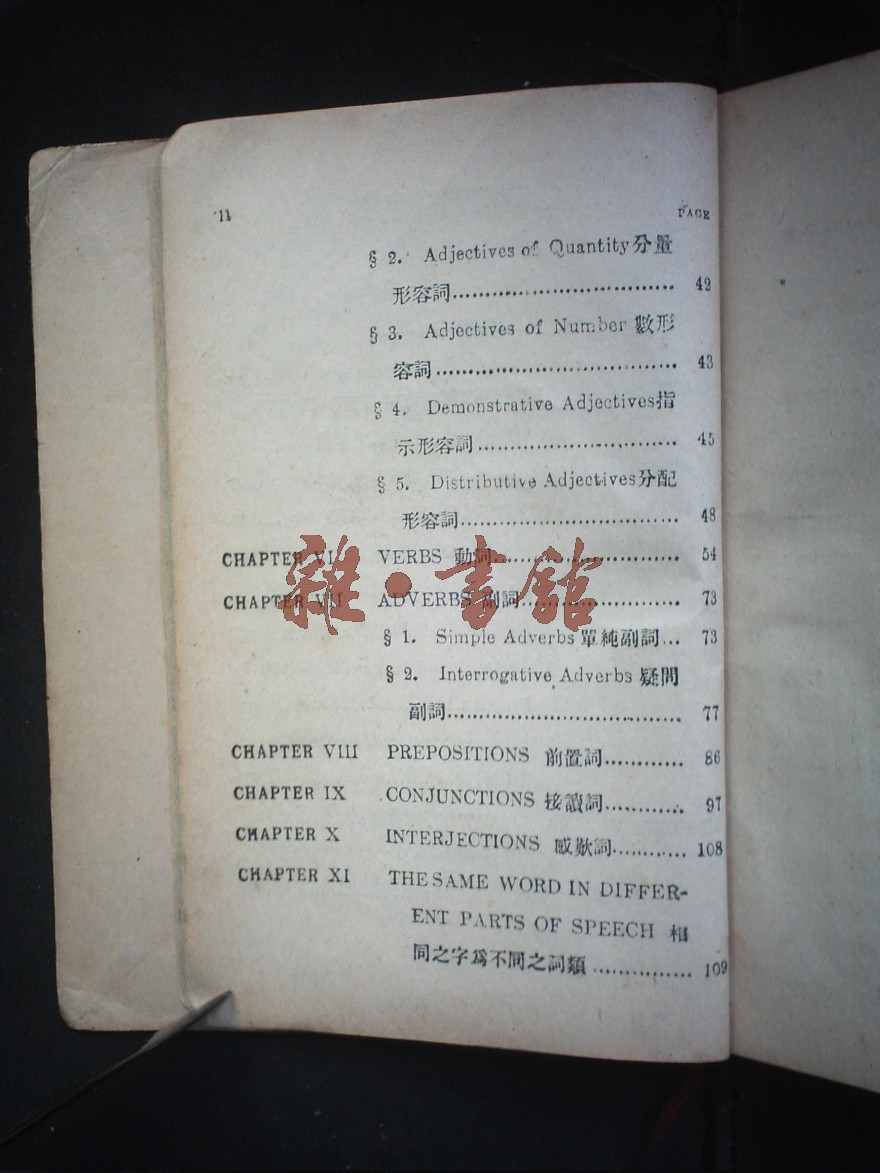 11
PAGE
§ 2. Adjectives of Quantity 分量
形容詞.................................. 42
§ 3. Adjectives of Number 數形
容詞..................................... 43
§ 4. Demonstrative Adjectives 指
示形容詞.............................. 45
§ 5. Distributive Adjectives 分配
形容詞.................................. 48
CHAPTER VI VERBS 動詞............................. 54
CHAPTER VII ADVERBS 副詞......................... 73
§ 1. Simple Adverbs 單純副詞... 73
§ 2. Interrogative Adverbs 疑問
副詞..................................... 77
CHAPTER VIII PREPOSITIONS 前置詞............ 86
CHAPTER IX CONJUNCTIONS 接讀詞............ 97
CHAPTER X INTERJECTIONS 感歎詞............ 108
CHAPTER XI THE SAME WORD IN DIFFER-
ENT PARTS OF SPEECH 相
同之字爲不同之詞類 ............... 109
雜·書館